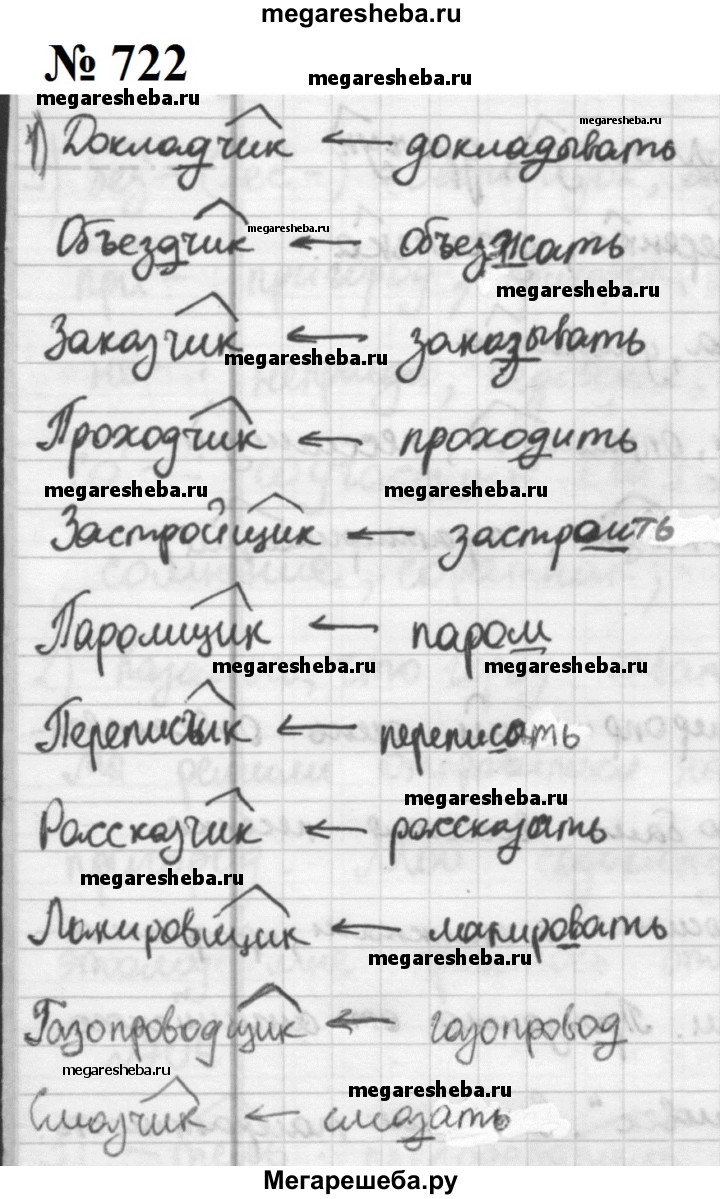 megaresheba.ru
№ 722
megaresheba.ru
megaresheba.ru
megaresheba.ru
1) Докладчик ← докладывать
megaresheba.ru
Объездчик ← объезжать
megaresheba.ru
Заказчик ← заказывать
megaresheba.ru
Проходчик ← проходить
megaresheba.ru megaresheba.ru
Застройщик ← застроить
Паромщик ← паром
megaresheba.ru megaresheba.ru
Переписчик ← переписать
megaresheba.ru
Рассказчик ← рассказать
megaresheba.ru
Лакировщик ← лакировать
megaresheba.ru
Газопроводщик ← газопровод
megaresheba.ru
megaresheba.ru
Смазчик ← смазать
Мегарешеба.ру